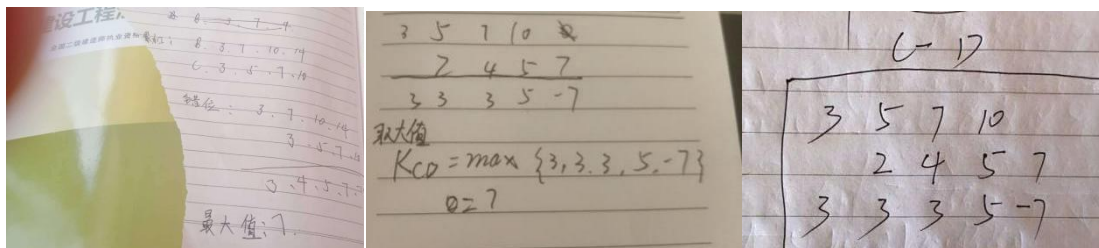 建设工程
B. 3. 7. 10. 14
C. 3. 5. 7. 10
错位: 3. 7. 10. 14
3. 5. 7. 10
3. 4. 5. 7.
最大值: 7.
3 5 7 10
2 4 5 7
3 3 3 5 -7
取大值
Kco = max {3, 3. 3, 5. -7}
= 7
C-D
3 5 7 10
2 4 5 7
3 3 3 5 -7